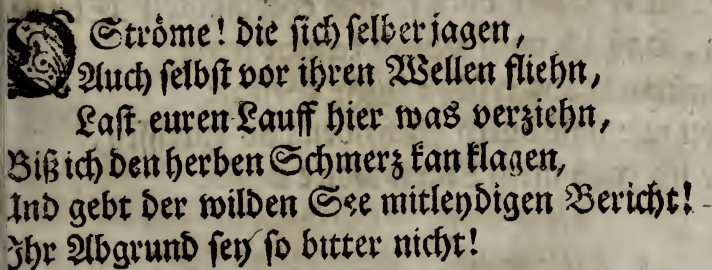 O Ströme! die sich selber jagen,
Auch selbst vor ihren Wellen fliehn,
Last euren Lauff hier was verziehn,
Biß ich den herben Schmerz kan klagen,
Und gebt der wilden See mitleydigen Bericht!
Ihr Abgrund sey so bitter nicht!